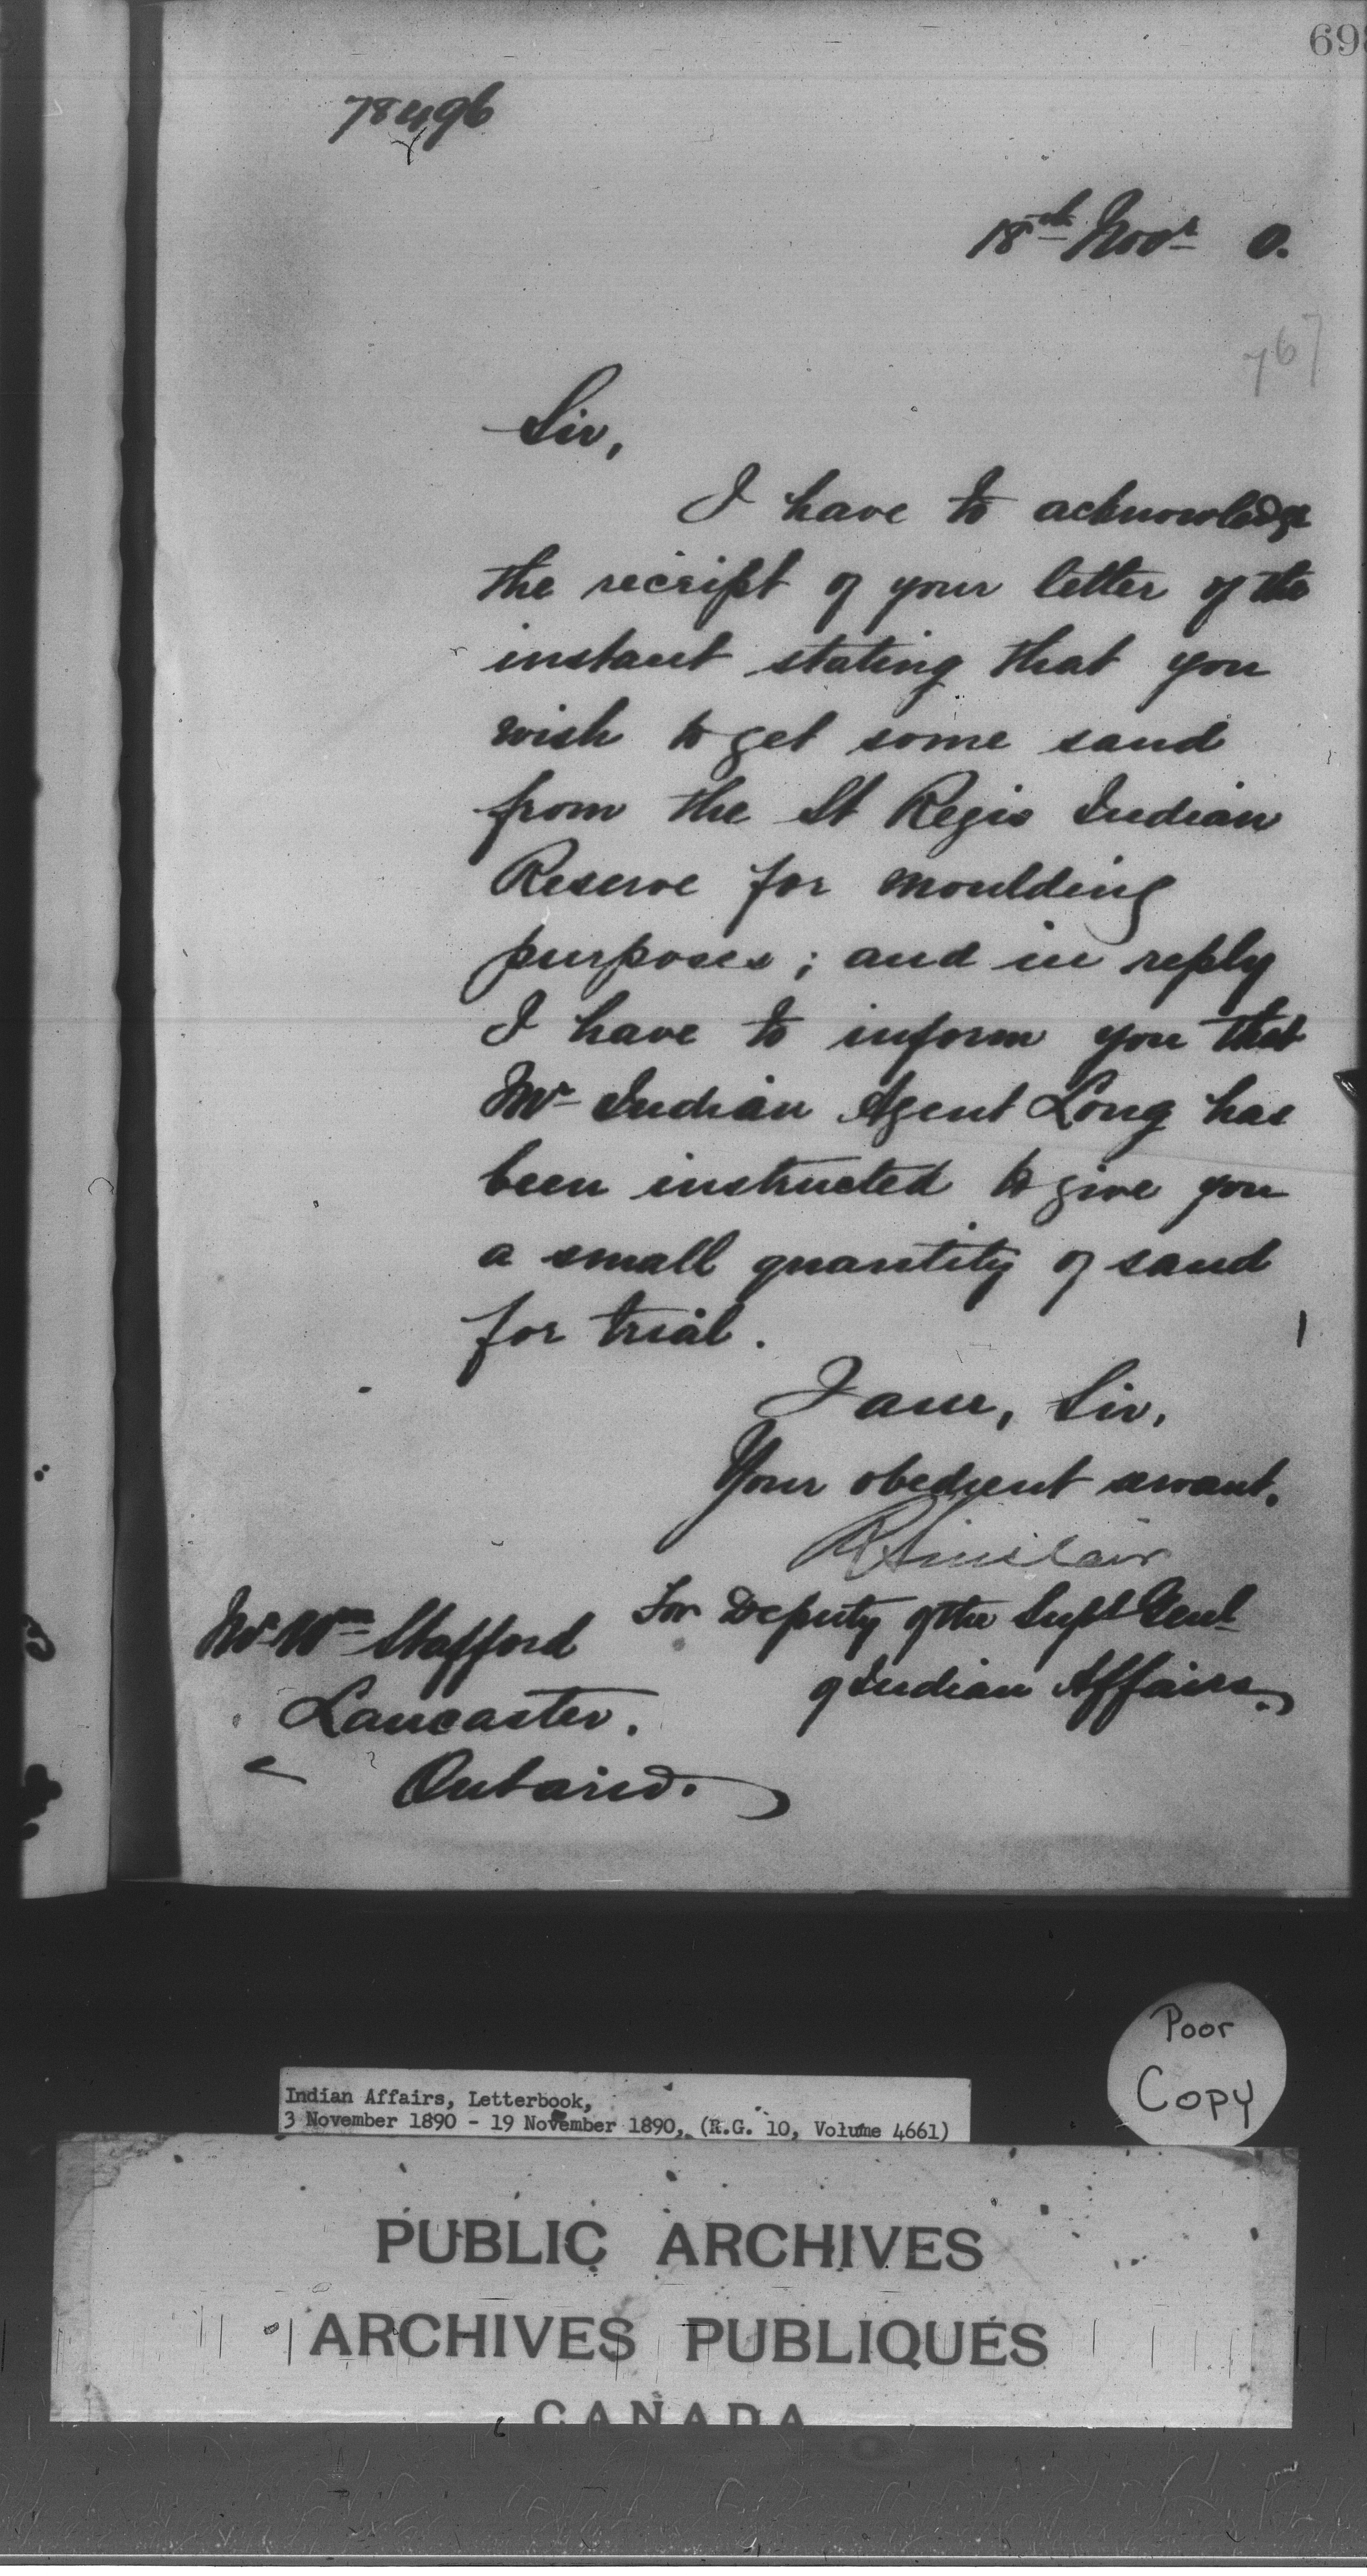 78496
18th Novr 0.
767
Sir,
I have to acknowledge
the receipt of your letter of the
instant stating that you
wish to get some sand
from the St Regis Indian
Reserve for moulding
purposes; and in reply
I have to inform you that
Mr Indian Agent Long has
been instructed to give you
a small quantity of sand
for trial.
I am, Sir,
Your obedient servant,
R Sinclair
For Deputy of the Supt Genl
of Indian Affairs.
Mr Wm Stafford
Lancaster.
Ontario.
Poor
Copy
Indian Affairs, Letterbook,
3 November 1890 - 19 November 1890, (R.G. 10, Volume 4661)
PUBLIC ARCHIVES
ARCHIVES PUBLIQUES
CANADA